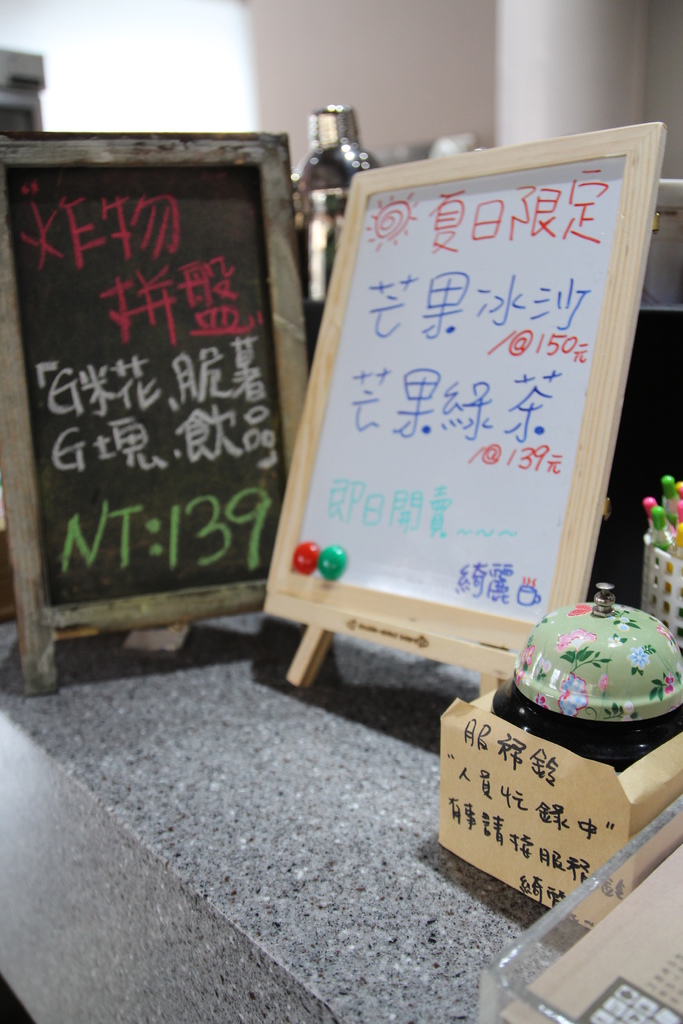 “炸物
拼盤”
「G米花、脆薯
G塊、飲品」
NT:139
夏日限定
芒果冰沙
/@150元
芒果綠茶
/@139元
即日開賣~~~
綺麗
服務鈴
"人員忙錄中"
有事請按服務
綺麗